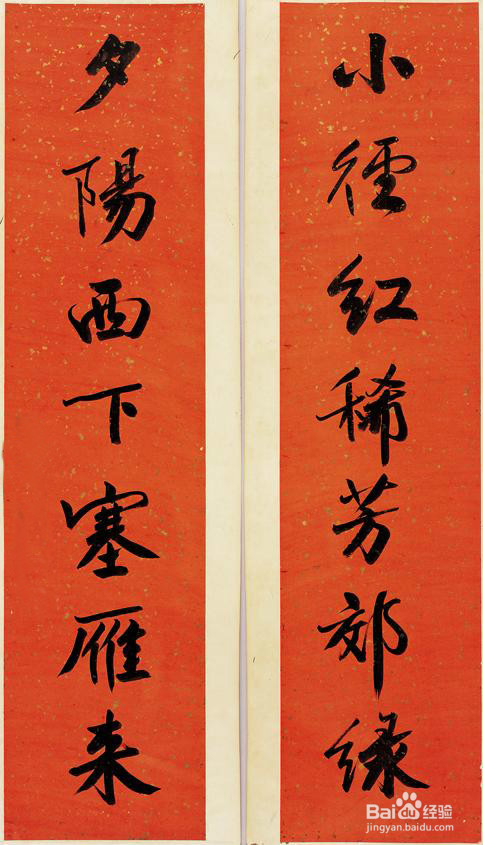 小徑紅稀芳郊緑
夕陽西下塞雁来
Baidu经验
jingyan.baidu.com